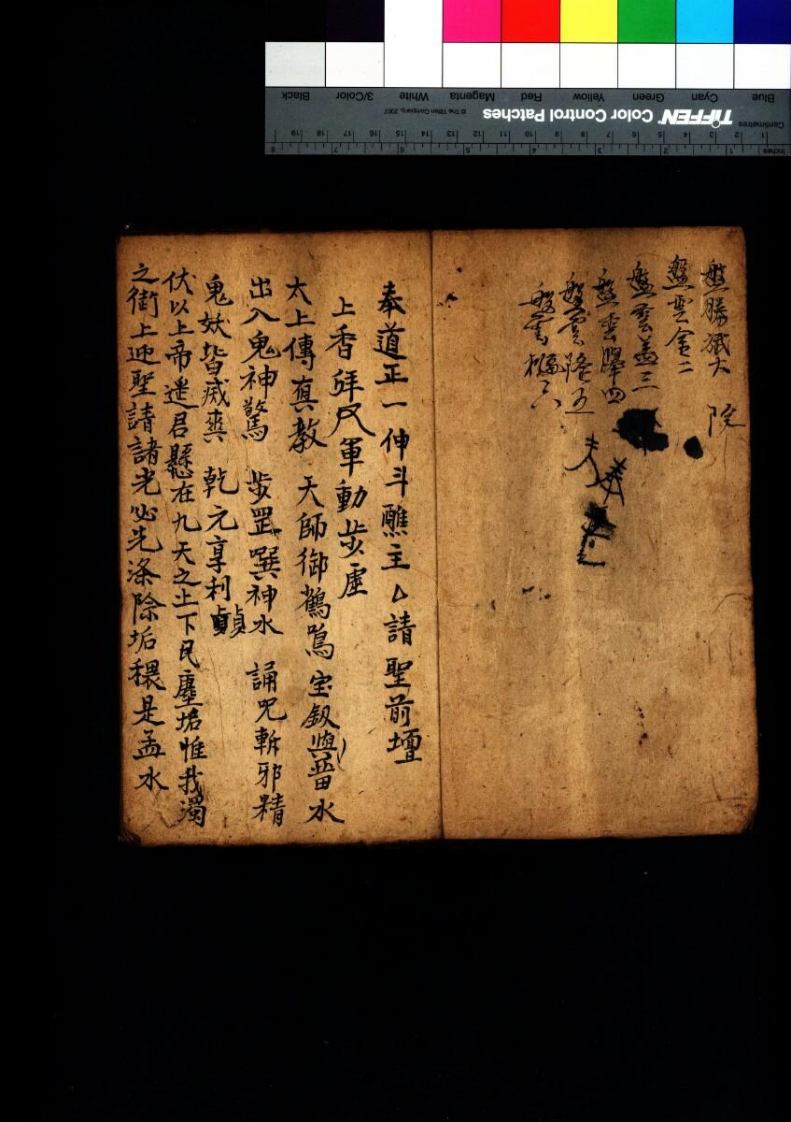 盤勝 大 院
盤雲金二
盤雲盖三
盤雲 四
盤雲隆五
盤雲 六
奉道正一伸斗醮主厶請聖前壇
上香拜 軍動步虛
太上傳真教 天師御鶴鳴 宝釼 水
出入鬼神驚 步罡噀神水 誦咒斬邪精
鬼妖皆滅爽 乾元亨利貞
伏以上帝遥君懸在九天之上下民塵垢惟我濁
之街上迎聖請諸光必先滌除垢穢是盂水
TIFFEN Color Control Patches
© The Tiffen Company, 2007
Blue Cyan Green Yellow Red Magenta White 3/Color Black
Centimetres
Inches